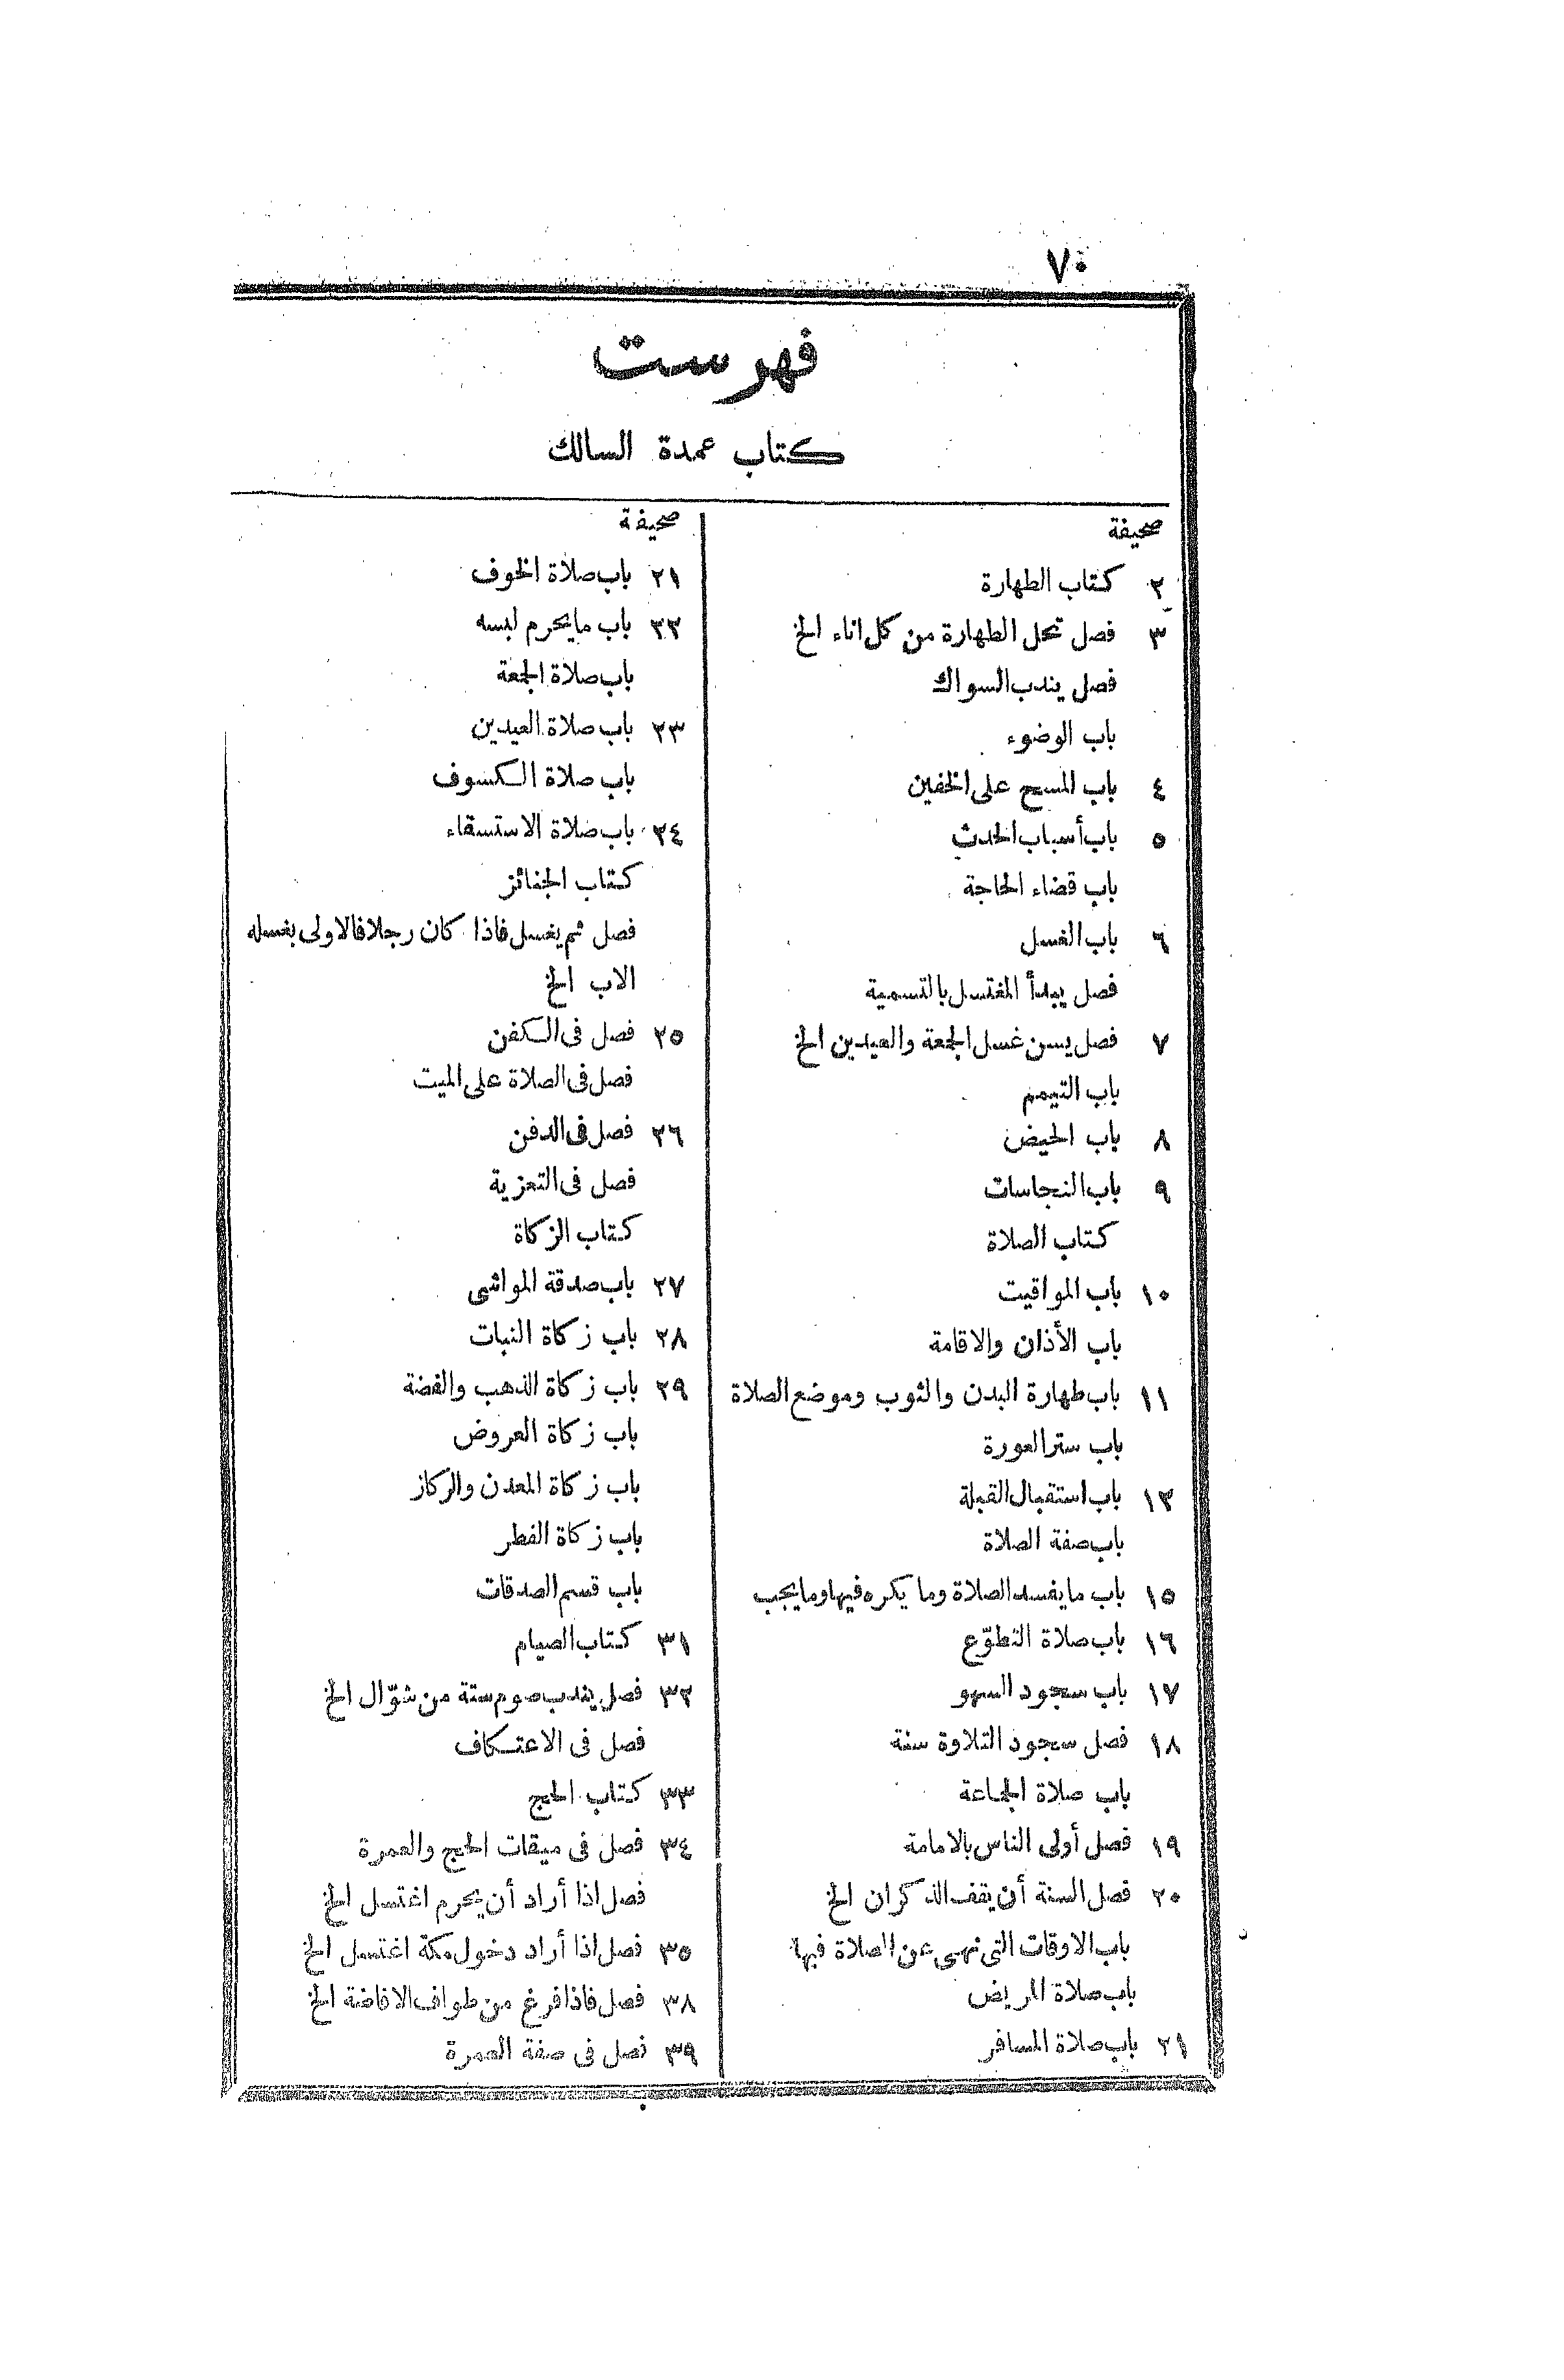 ٧٠
فهرست
كتاب عمدة السالك
صحيفة
٢ كتاب الطهارة
٣ فصل تحل الطهارة من كل اناء الخ
فصل يندب السواك
باب الوضوء
٤ باب المسح على الخفين
٥ باب أسباب الحدث
باب قضاء الحاجة
٦ باب الغسل
فصل يبدأ المغتسل بالتسمية
٧ فصل يسن غسل الجمعة والعيدين الخ
باب التيمم
٨ باب الحيض
٩ باب النجاسات
كتاب الصلاة
١٠ باب المواقيت
باب الأذان والاقامة
١١ باب طهارة البدن والثوب وموضع الصلاة
باب ستر العورة
١٣ باب استقبال القبلة
باب صفة الصلاة
١٥ باب ما يفسد الصلاة وما يكره فيها وما يجب
١٦ باب صلاة التطوّع
١٧ باب سجود السهو
١٨ فصل سجود التلاوة سنة
باب صلاة الجماعة
١٩ فصل أولى الناس بالامامة
٢٠ فصل السنة أن يقف الذكران الخ
باب الاوقات التى نهى عن الصلاة فيها
باب صلاة المريض
٢١ باب صلاة المسافر
صحيفة
٢١ باب صلاة الخوف
٢٢ باب ما يحرم لبسه
باب صلاة الجمعة
٢٣ باب صلاة العيدين
باب صلاة الكسوف
٢٤ باب صلاة الاستسقاء
كتاب الجنائز
فصل ثم يغسل فاذا كان رجلا فالاولى بغسله
الاب الخ
٢٥ فصل فى الكفن
فصل فى الصلاة على الميت
٢٦ فصل فى الدفن
فصل فى التعزية
كتاب الزكاة
٢٧ باب صدقة المواشى
٢٨ باب زكاة النبات
٢٩ باب زكاة الذهب والفضة
باب زكاة العروض
باب زكاة المعدن والركاز
باب زكاة الفطر
باب قسم الصدقات
٣١ كتاب الصيام
٣٢ فصل يندب صوم ستة من شوّال الخ
فصل فى الاعتكاف
٣٣ كتاب الحج
٣٤ فصل فى ميقات الحج والعمرة
فصل اذا أراد أن يحرم اغتسل الخ
٣٥ فصل اذا أراد دخول مكة اغتسل الخ
٣٨ فصل فاذا فرغ من طواف الافاضة الخ
٣٩ فصل فى صفة العمرة